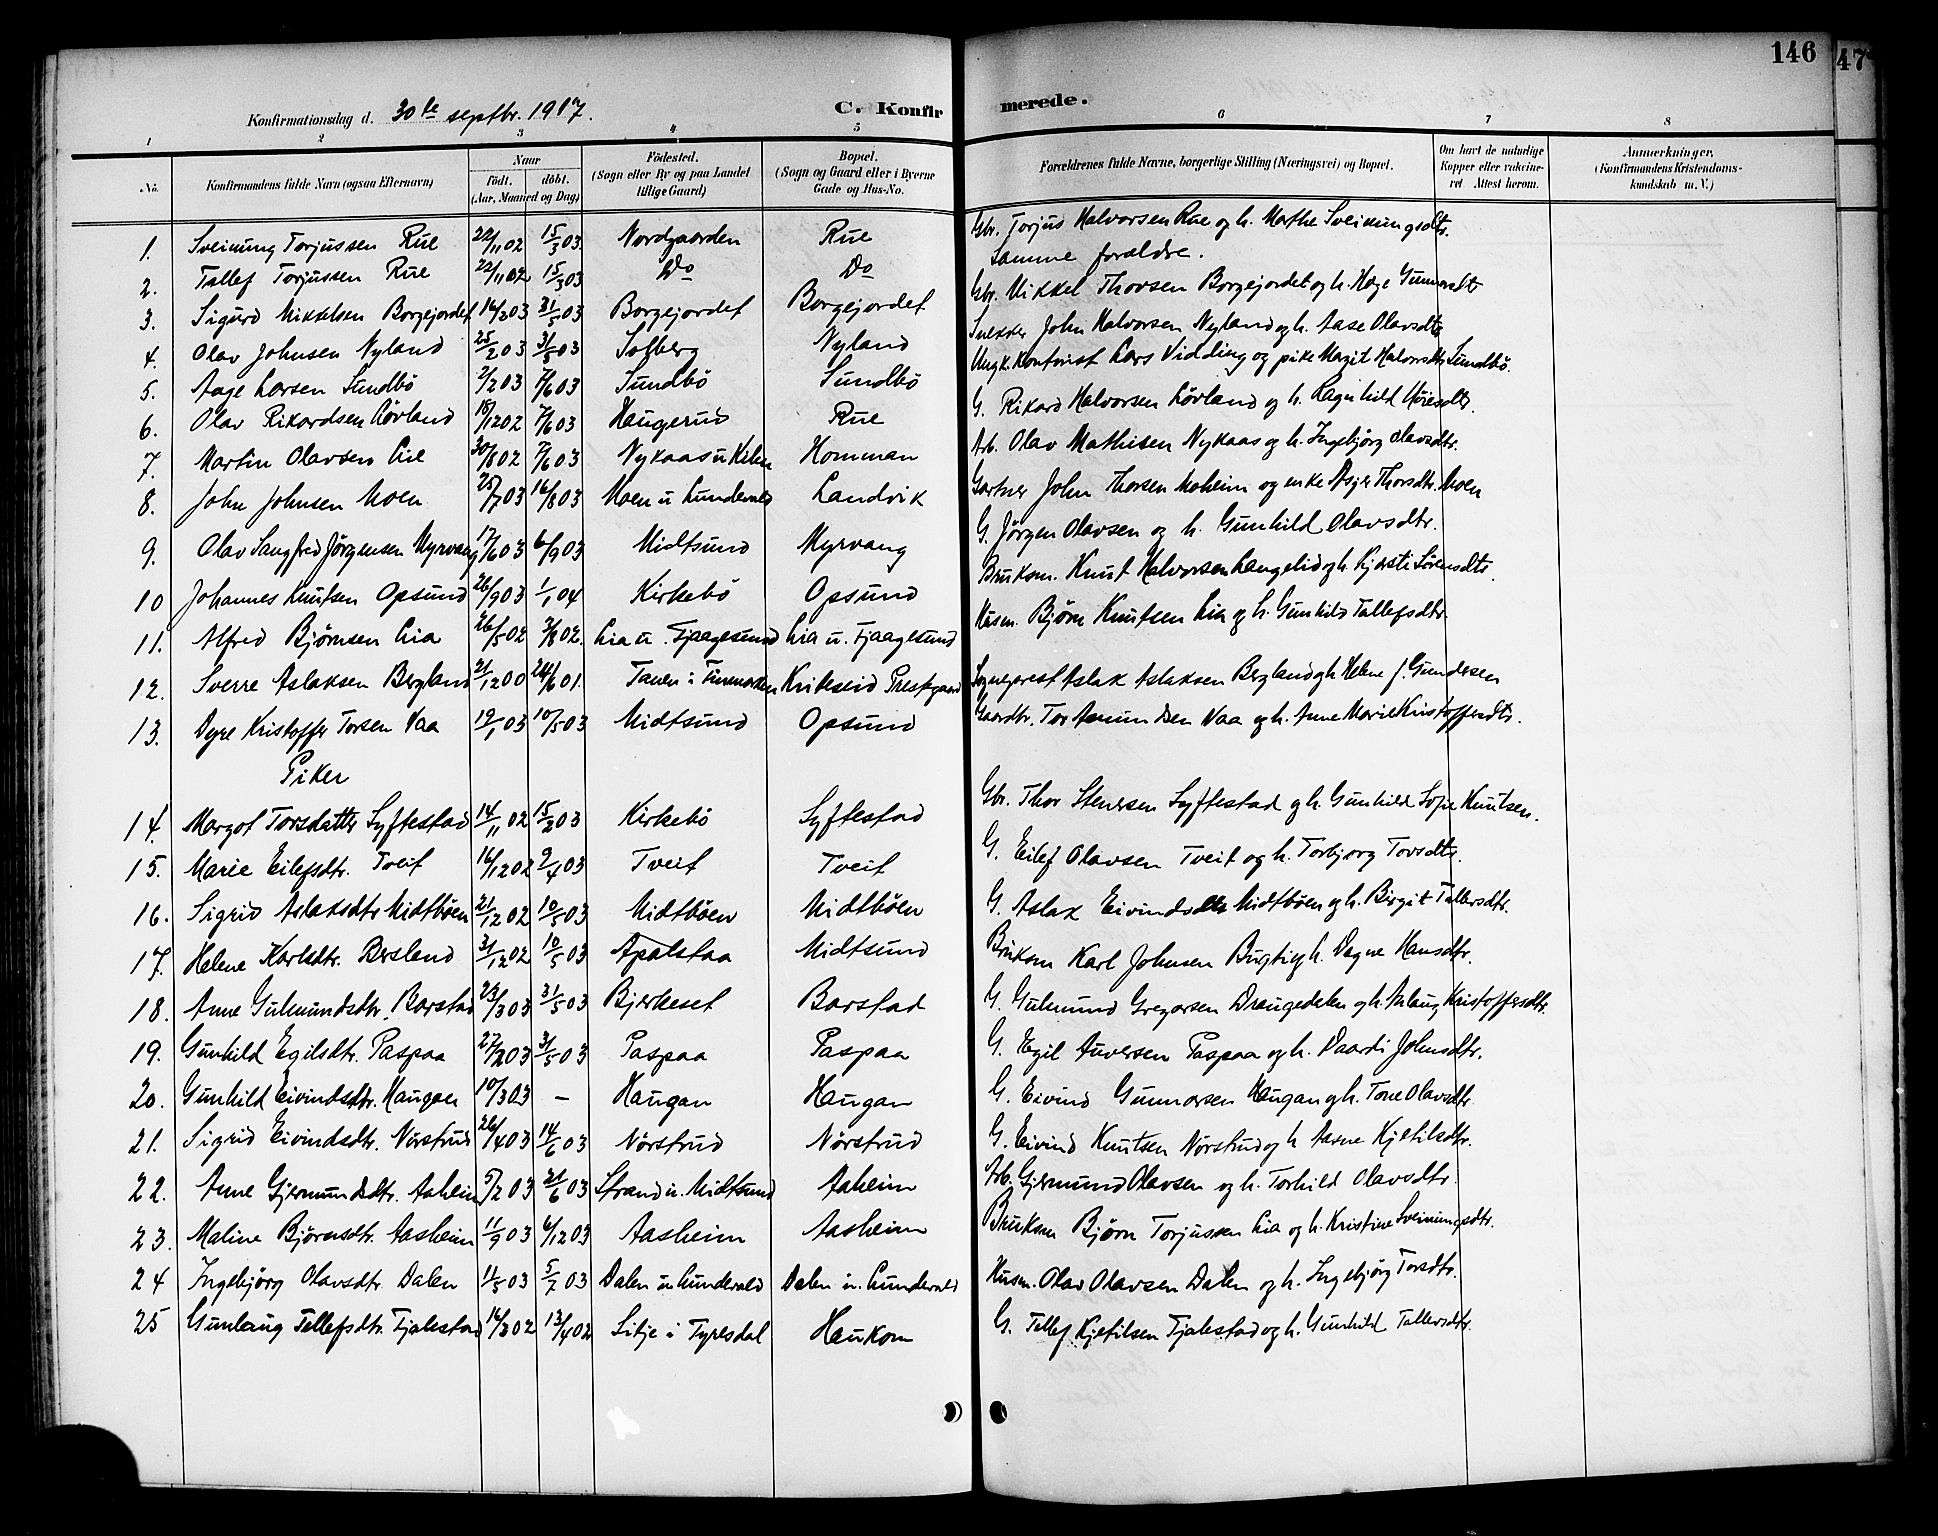 146
47
Konfirmationsdag d. 30te septbr. 1917.
C. Konfirmerede.
1 2 3 4 5 6 7 8
No. Konfirmandens fulde Navn (ogsaa Efternavn) Naar født. døbt. (Aar, Maaned og Dag) Fødested. (Sogn eller By og paa Landet tillige Gaard) Bopæl. (Sogn og Gaard eller i Byerne Gade og Hus-No. Forældrenes fulde Navne, borgerlige Stilling (Næringsvei) og Bopæl. Om havt de naturlige Kopper eller vaccineret Attest herom. Anmærkninger, (Konfirmandens Kristendomskundskab m. V.)
1. Sveinung Torjussen Rue 22/11 02 15/3 03 Nordgaarden Rue Gbr. Torjus Halvorsen Rue og h. Marthe Sveinungsdtr.
2. Tallef Torjussen Rue 22/11 02 15/3 03 Do Do Samme forældre.
3. Sigurd Mikkelsen Borgejordet 16/3 03 31/5 03 Borgejordet Borgejordet Gbr. Mikkel Thovsen Borgejordet og h. Hæge Gunnarsdtr
4. Olav Johnsen Nyland 25/2 03 31/5 03 Solberg Nyland Snekker John Halvorsen Nyland og h. Aase Olavsdtr
5. Aage Larsen Sundbö 2/2 03 7/6 03 Sundbö Sundbö Ungk. Kontorist Lars Vidding og pike Margit Halvorsdtr Sundbö.
6. Olav Rikardsen Lövland 18/12 02 7/6 03 Haugerud Rue G. Rikard Halvorsen Lövland og h. Ragnhild
7. Martin Olavsen Lie 30/8 02 7/6 03 Nykaas u Kilen Homman Arb. Olav Mathisen Nykaas og h. Ingebjørg Olavsdtr.
8. John Johnsen Moen 25/7 03 16/8 03 Moen u Lundevald Landvik Gartner John Thorsen Moheim og enke Asjer Thorsdtr. Moen
9. Olav Sangfred Jørgensen Myrvang 17/6 03 6/9 03 Midtsund Myrvang G. Jörgen Olavsen og h. Gunhild Olavsdtr.
10 Johannes Knutsen Opsund 26/9 03 1/1 04 Kirkebö Opsund Bruksm. Knut Halvorsen Langelid og h. Kjersti Sörensdtr.
11. Alfred Bjørnsen Lia 26/5 02 3/8 02. Lia u. Fjaagesund Lia u. Fjaagesund Husm. Bjørn Knutsen Lia og h. Gunhild Tallefsdtr.
12. Sverre Aslaksen Bergland 21/12 00 24/6 01. Tanen i Finmarken Kviteseid Prestegaard Sogneprest Aslak Aslaksen Bergland og h Helene J. Gundersen
13. Dyre Kristoffer Torsen Vaa 19/1 03 10/5 03 Midtsund Opsund Gaardbr. Tor Amundsen Vaa og h. Anne Marie Kristoffersdtr.
Piker
14. Margot Torsdatter Syftestad 14/11 02 15/2 03 Kirkebö Syftestad Gbr. Thor Stenersen Syftestad og h. Gunhild Sofie Knutsen.
15. Marie Eilefsdtr. Tveit 16/12 02 9/4 03 Tveit Tveit G. Eilef Olavsen Tveit og h. Torbjorg Tovsdtr.
16. Sigrid Aslaksdtr Midtböen 21/12 02 10/5 03 Midtböen Midtböen G. Aslak Eivindsen Midtböen og h. Bergit Tallevsdtr.
17. Helene Karlsdtr. Bersland 31/12 02 10/5 03 Apalstaa Midtsund Bruksm Karl Johnsen Bugti og h. Dagne Hansdtr.
18. Anne Gulmundsdtr. Barstad 23/3 03 31/5 03 Bjerkeset Barstad G. Gulmund Gregarsen Draugedalen og h. Aslaug Kristoffersdtr.
19. Gunhild Egilsdtr. Paspaa 27/2 03 3/5 03 Paspaa Paspaa G. Egil Auversen Paspaa og h. Vaardi Johnsdtr.
20. Gunhild Eivindsdtr. Haugan 10/3 03 — Haugan Haugan G. Eivind Gunnarsen Haugan og h. Tone Olavsdtr
21. Sigrid Eivindsdtr. Nörstrud 26/4 03 14/6 03 Nörstrud Nörstrud G. Eivind Knutsen Nörstrud og h Aasne Kjetilsdtr.
22. Anne Gjermundsdtr. Aaheim 5/2 03 21/6 03 Strand u. Midtsund Aaheim Arb. Gjermund Olavsen og h. Torhild Olavsdtr.
23. Maline Bjørnsdtr. Aasheim 11/9 03 6/12 03 Aasheim Aasheim Bruksm Bjørn Torjussen Lia og h. Kristine Sveinungsdtr.
24 Ingebjörg Olavsdtr Dalen 11/5 03 5/7 03 Dalen u Lundevald Dalen u. Lundevald Husm. Olav Olavsen Dalen og h. Ingebjörg Torsdtr.
25 Gunlaug Tellefsdtr. Tjalestad 16/3 02 13/4 02 Lilje i Tyresdal Haukom G. Tellef Kjetilsen Tjalestad og h. Gunhild Tallevsdtr.